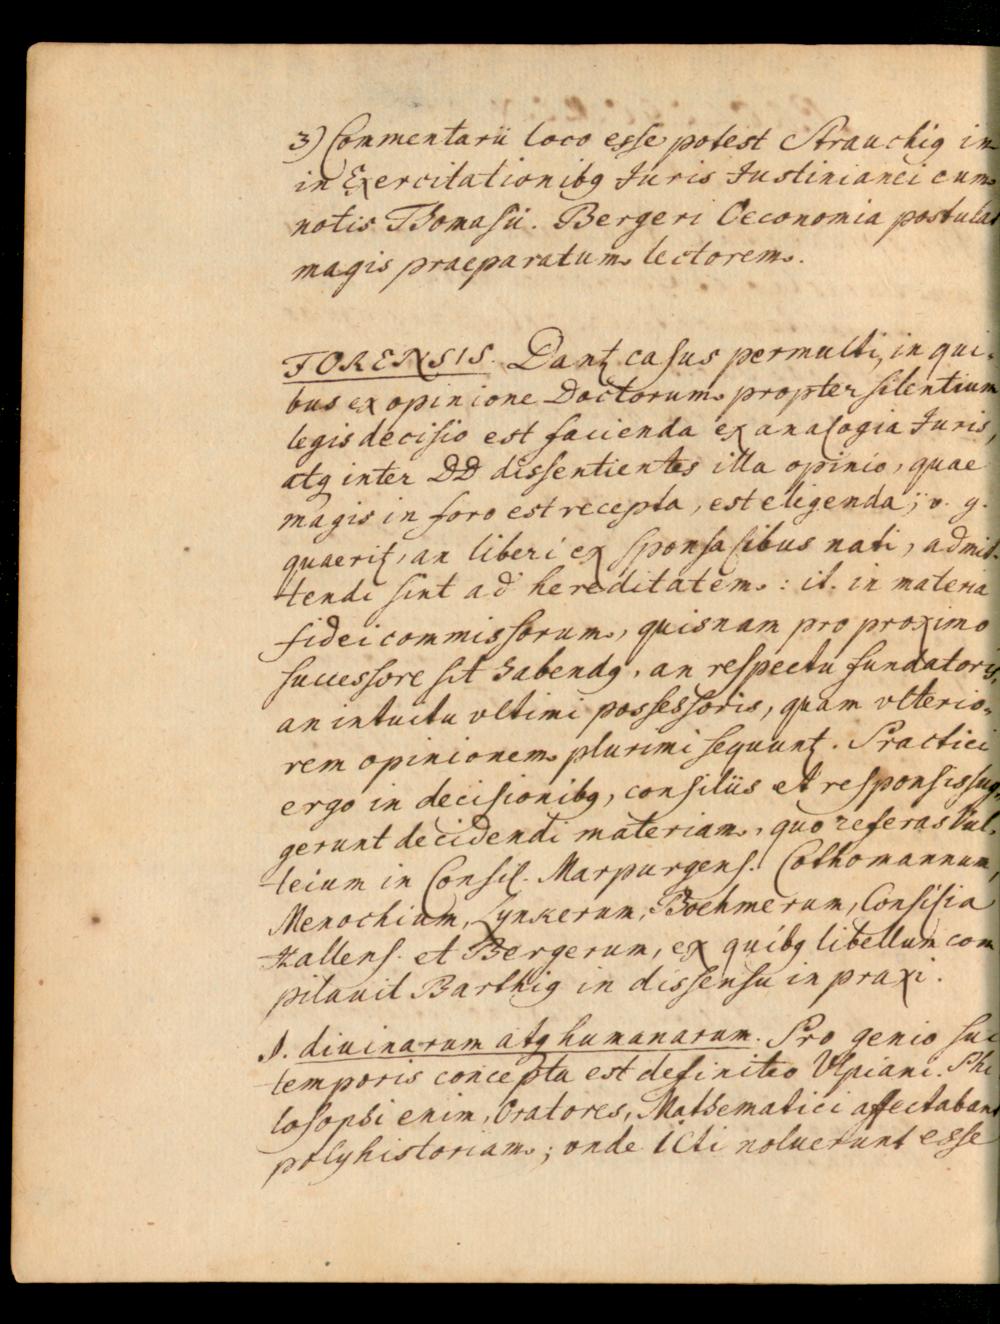 3) Commentarii loco esse potest Strauchig in
in Exercitationibg Juris Justinianei cum
notis Thomasii. Bergeri Oeconomia postulat
magis praeparatum lectorem.
FORENSIS. Dantz casus permulti, in qui-
bus ex opinione Doctorum propter silentium
legis decisio est facienda ex analogia Juris,
atq inter DD dissentientes illa opinio, quae
magis in foro est recepta, est eligenda; v. g.
quaeritz, an liberi ex sponsalibus nati, admit-
tendi sint ad hereditatem: it. in materia
fideicommissorum, quisnam pro proximo
successore sit habendg, an respectu fundatoris,
an intuitu ultimi possessoris, quam ulterio-
rem opinionem plurimi sequuntz. Practici
ergo in decisionibg, consiliis et responsis sug-
gerunt decidendi materiam, quo referas Vul-
teium in Consil. Marpurgens. Cothomannum,
Menochium, Lynkerum, Boehmerum, Consilia
Hallens. et Bergerum, ex quibg libellum com
pilavit Barthig in dissensu in praxi.
J. divinarum atq humanarum. Pro genio sui
temporis concepta est definitio Ulpiani. Phi
losophi enim, Oratores, Mathematici affectabant
polyhistoriam; unde ICti noluerunt esse